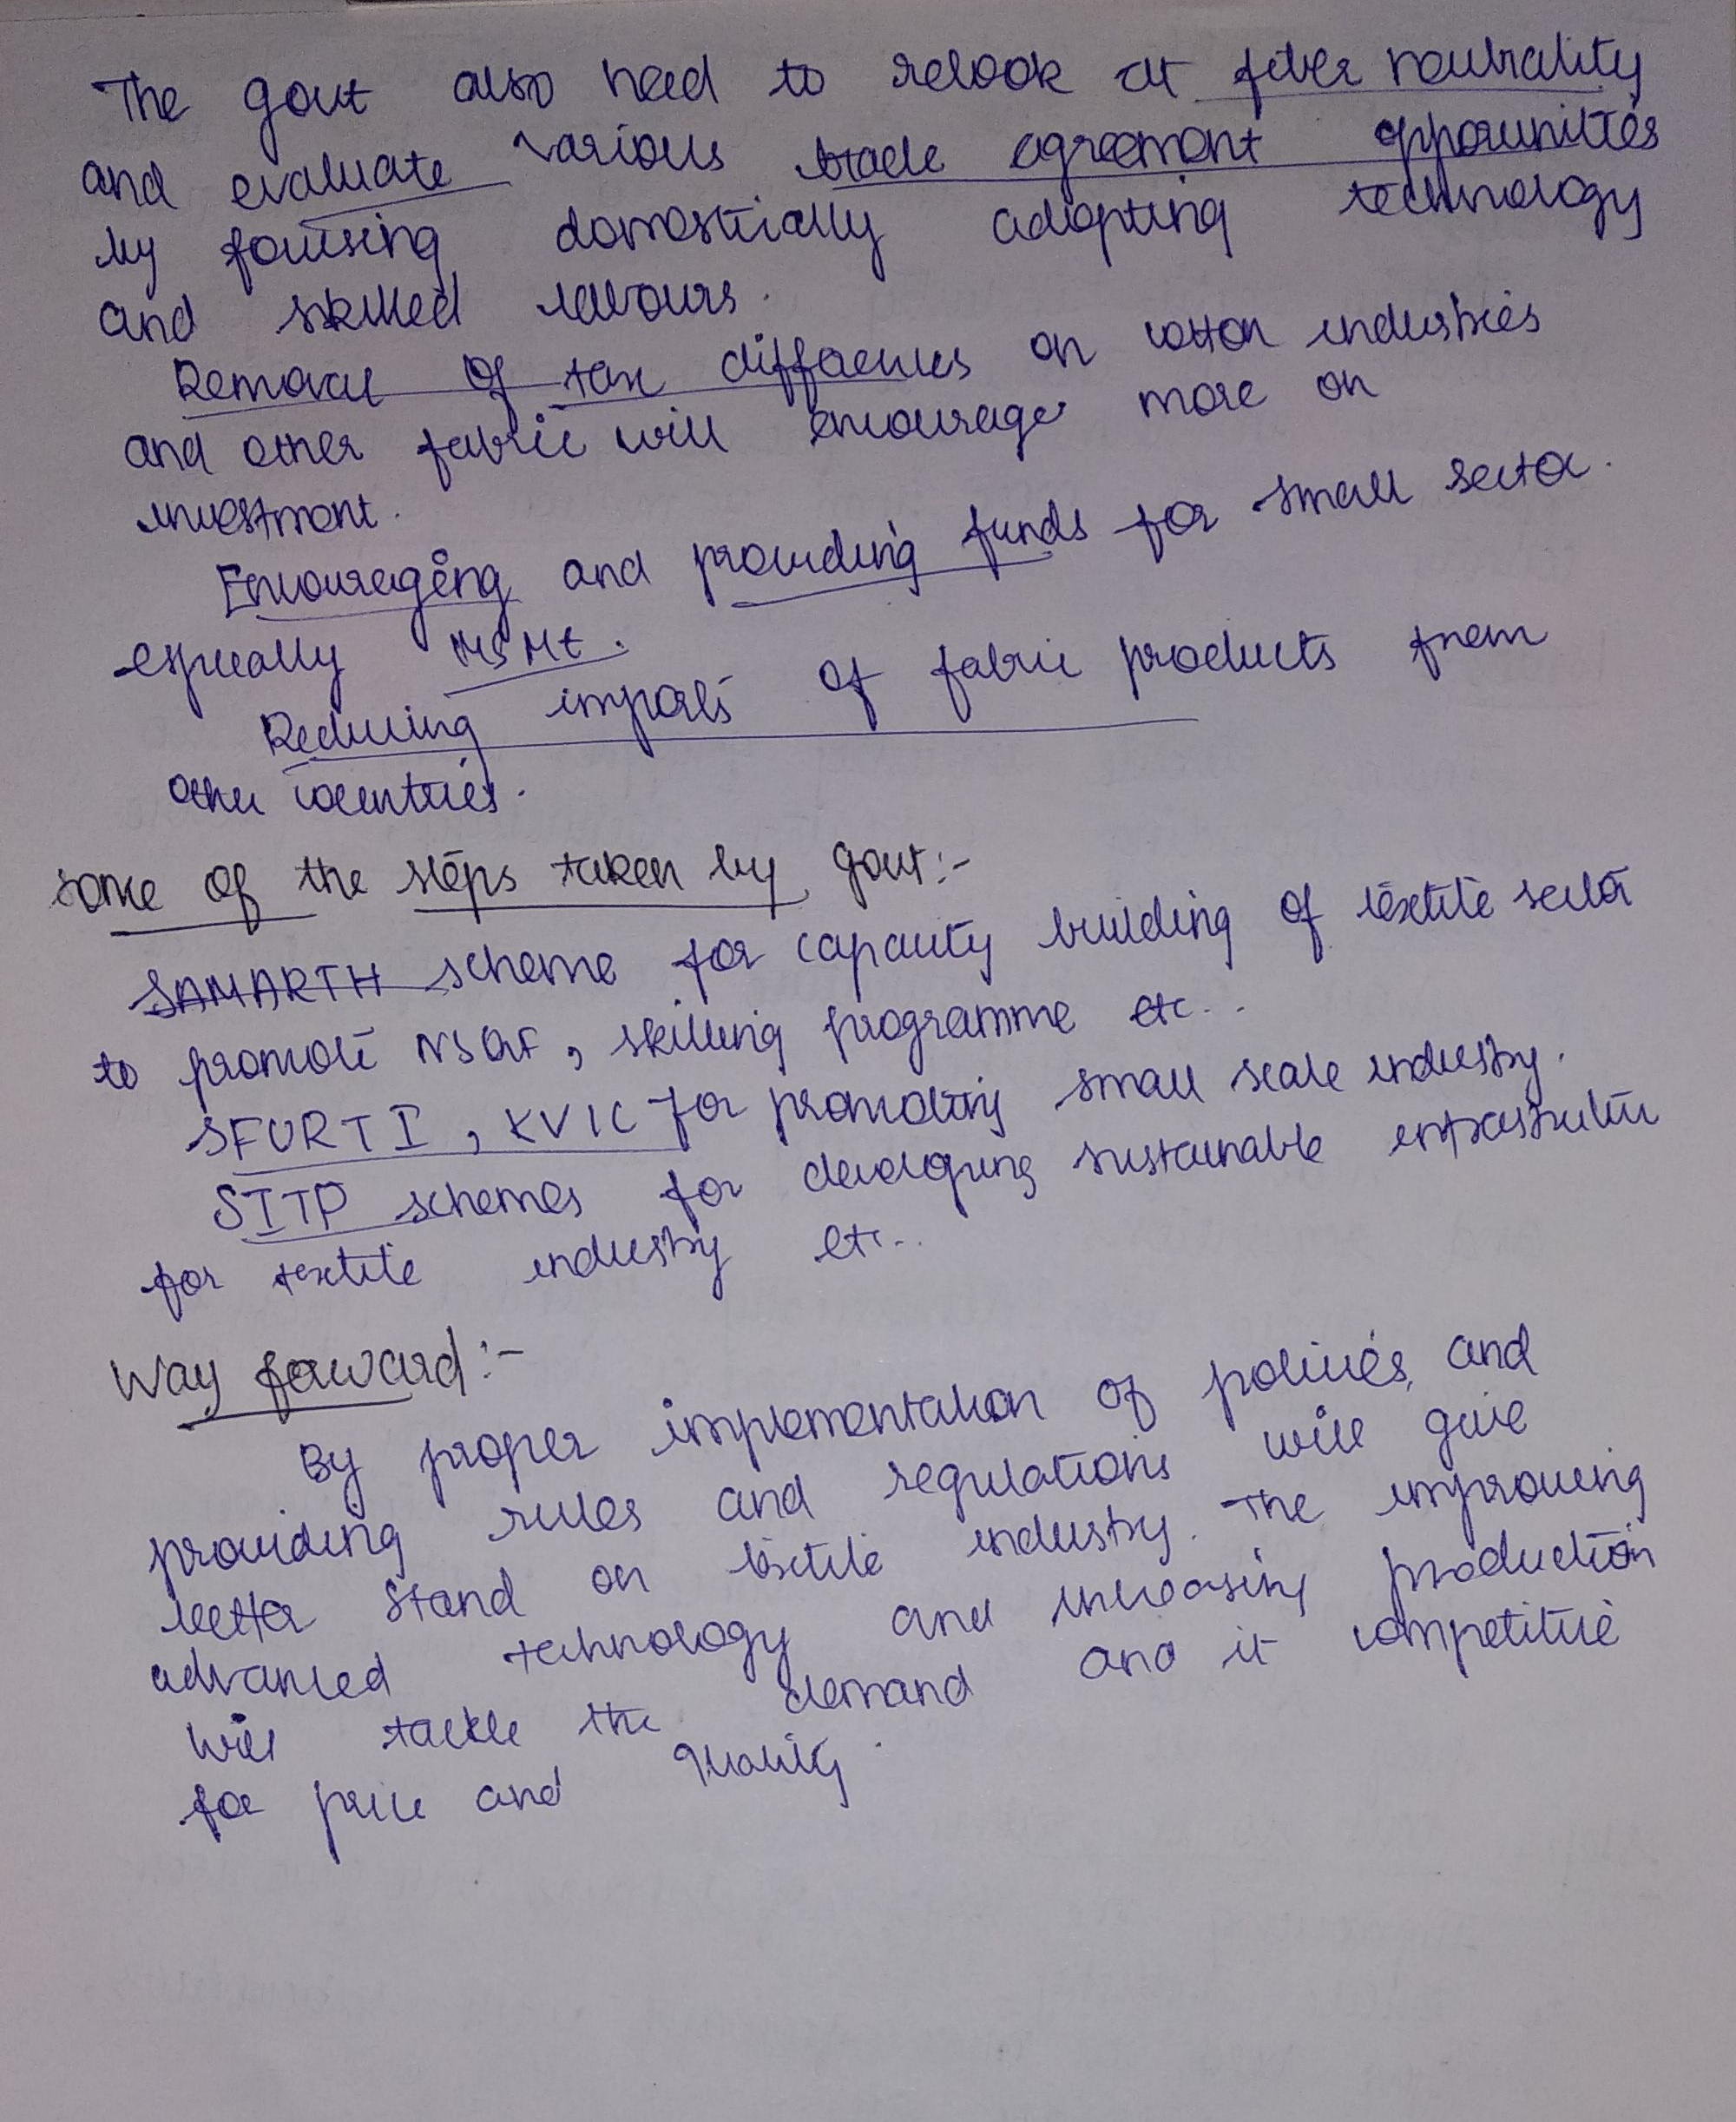 The govt also need to relook at fiber neutrality
and evaluate various trade agreement opporunities
by focusing domestically adopting technology
and skilled labours.
Removal of tax diffaences on cotton industries
and other fabric will encourage more on
investment.
Encouraging and providing funds for small sector.
espically MSME.
Reducing imports of fabric products from
other countries.
Some of the steps taken by govt:-
SAMARTH scheme for capacity building of textile sector
to promote NSQF, skilling programme etc...
SFURTI, KVIC for promoting small scale industry.
SITP schemes for developing sustainable infrastructure
for textile industry etc...
Way forward:-
By proper implementation of policies, and
providing rules and regulations will give
better stand on textile industry. The improving
advanced technology and increasing production
will tackle the demand and it competitive
for price and quality.